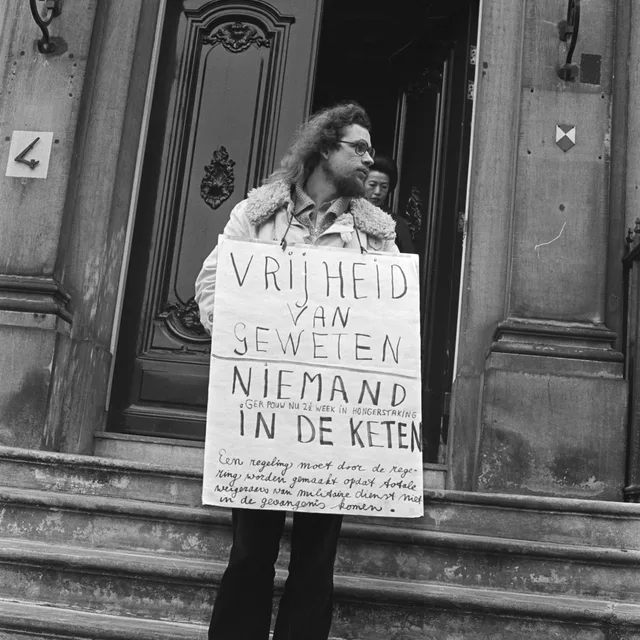 4
VRIJHEID
VAN
GEWETEN
NIEMAND
GER POUW NU 2E WEEK IN HONGERSTAKING
IN DE KETEN
Een regeling moet door de rege-
ring worden gemaakt opdat totale
weigeraars van militaire dienst niet
in de gevangenis komen!